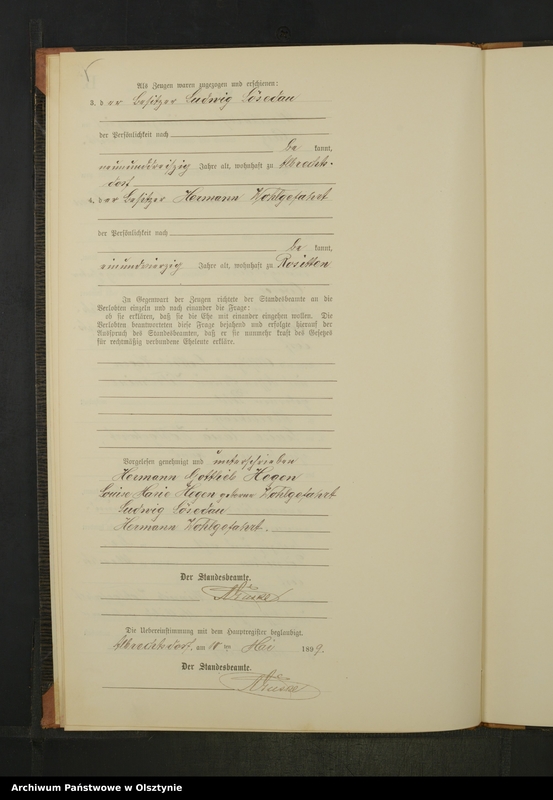 Als Zeugen waren zugezogen und erschienen:
3. der Besitzer Ludwig Gösedau
der Persönlichkeit nach
be kannt,
neununddreißig Jahre alt, wohnhaft zu Albrechts-
dorf
4. der Besitzer Hermann Wohlgefahrt
der Persönlichkeit nach
be kannt,
einundvierzig Jahre alt, wohnhaft zu Rositten
In Gegenwart der Zeugen richtete der Standesbeamte an die
Verlobten einzeln und nach einander die Frage:
ob sie erklären, daß sie die Ehe mit einander eingehen wollen. Die
Verlobten beantworteten diese Frage bejahend und erfolgte hierauf der
Ausspruch des Standesbeamten, daß er sie nunmehr kraft des Gesetzes
für rechtmäßig verbundene Eheleute erkläre.
Vorgelesen genehmigt und unterschrieben
Hermann Gottlieb Hegen
Louise Marie Hegen geborene Wohlgefahrt
Ludwig Gösedau
Hermann Wohlgefahrt.
Der Standesbeamte.
Die Uebereinstimmung mit dem Hauptregister beglaubigt.
Albrechtsdorf, am 10 ten Mai 1899.
Der Standesbeamte.
Archiwum Państwowe w Olsztynie